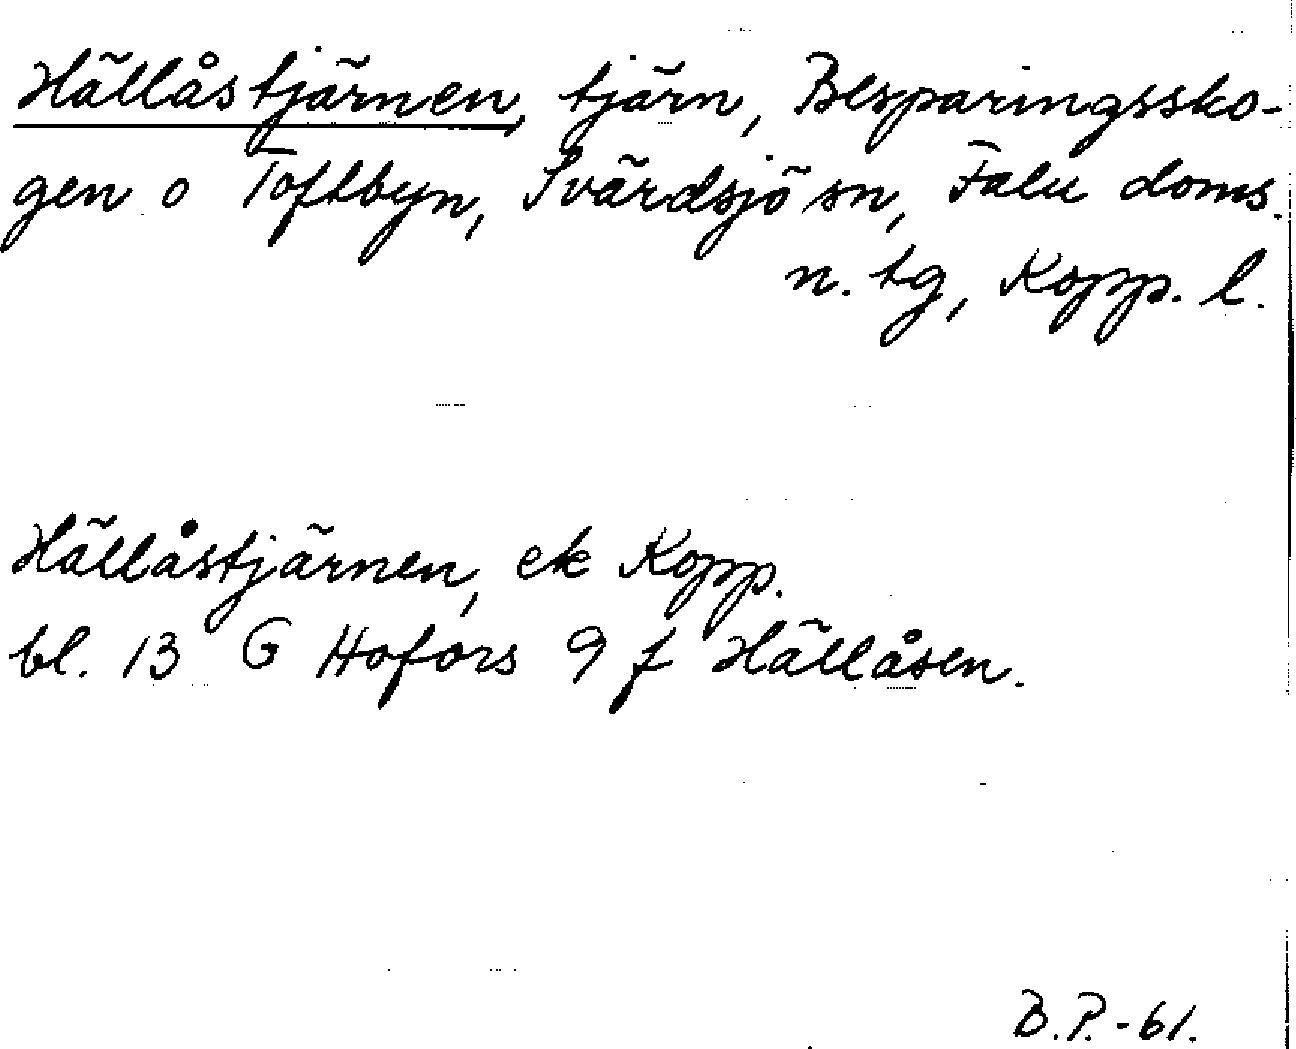 Hällåstjärnen, tjärn, Besparingssko-
gen o Toftbyn, Svärdsjö sn, Falu doms.
n. tg, Kopp. l.
Hällåstjärnen, ek Kopp.
bl. 13 G Hofors 9 f Hällåsen.
B.P.-61.